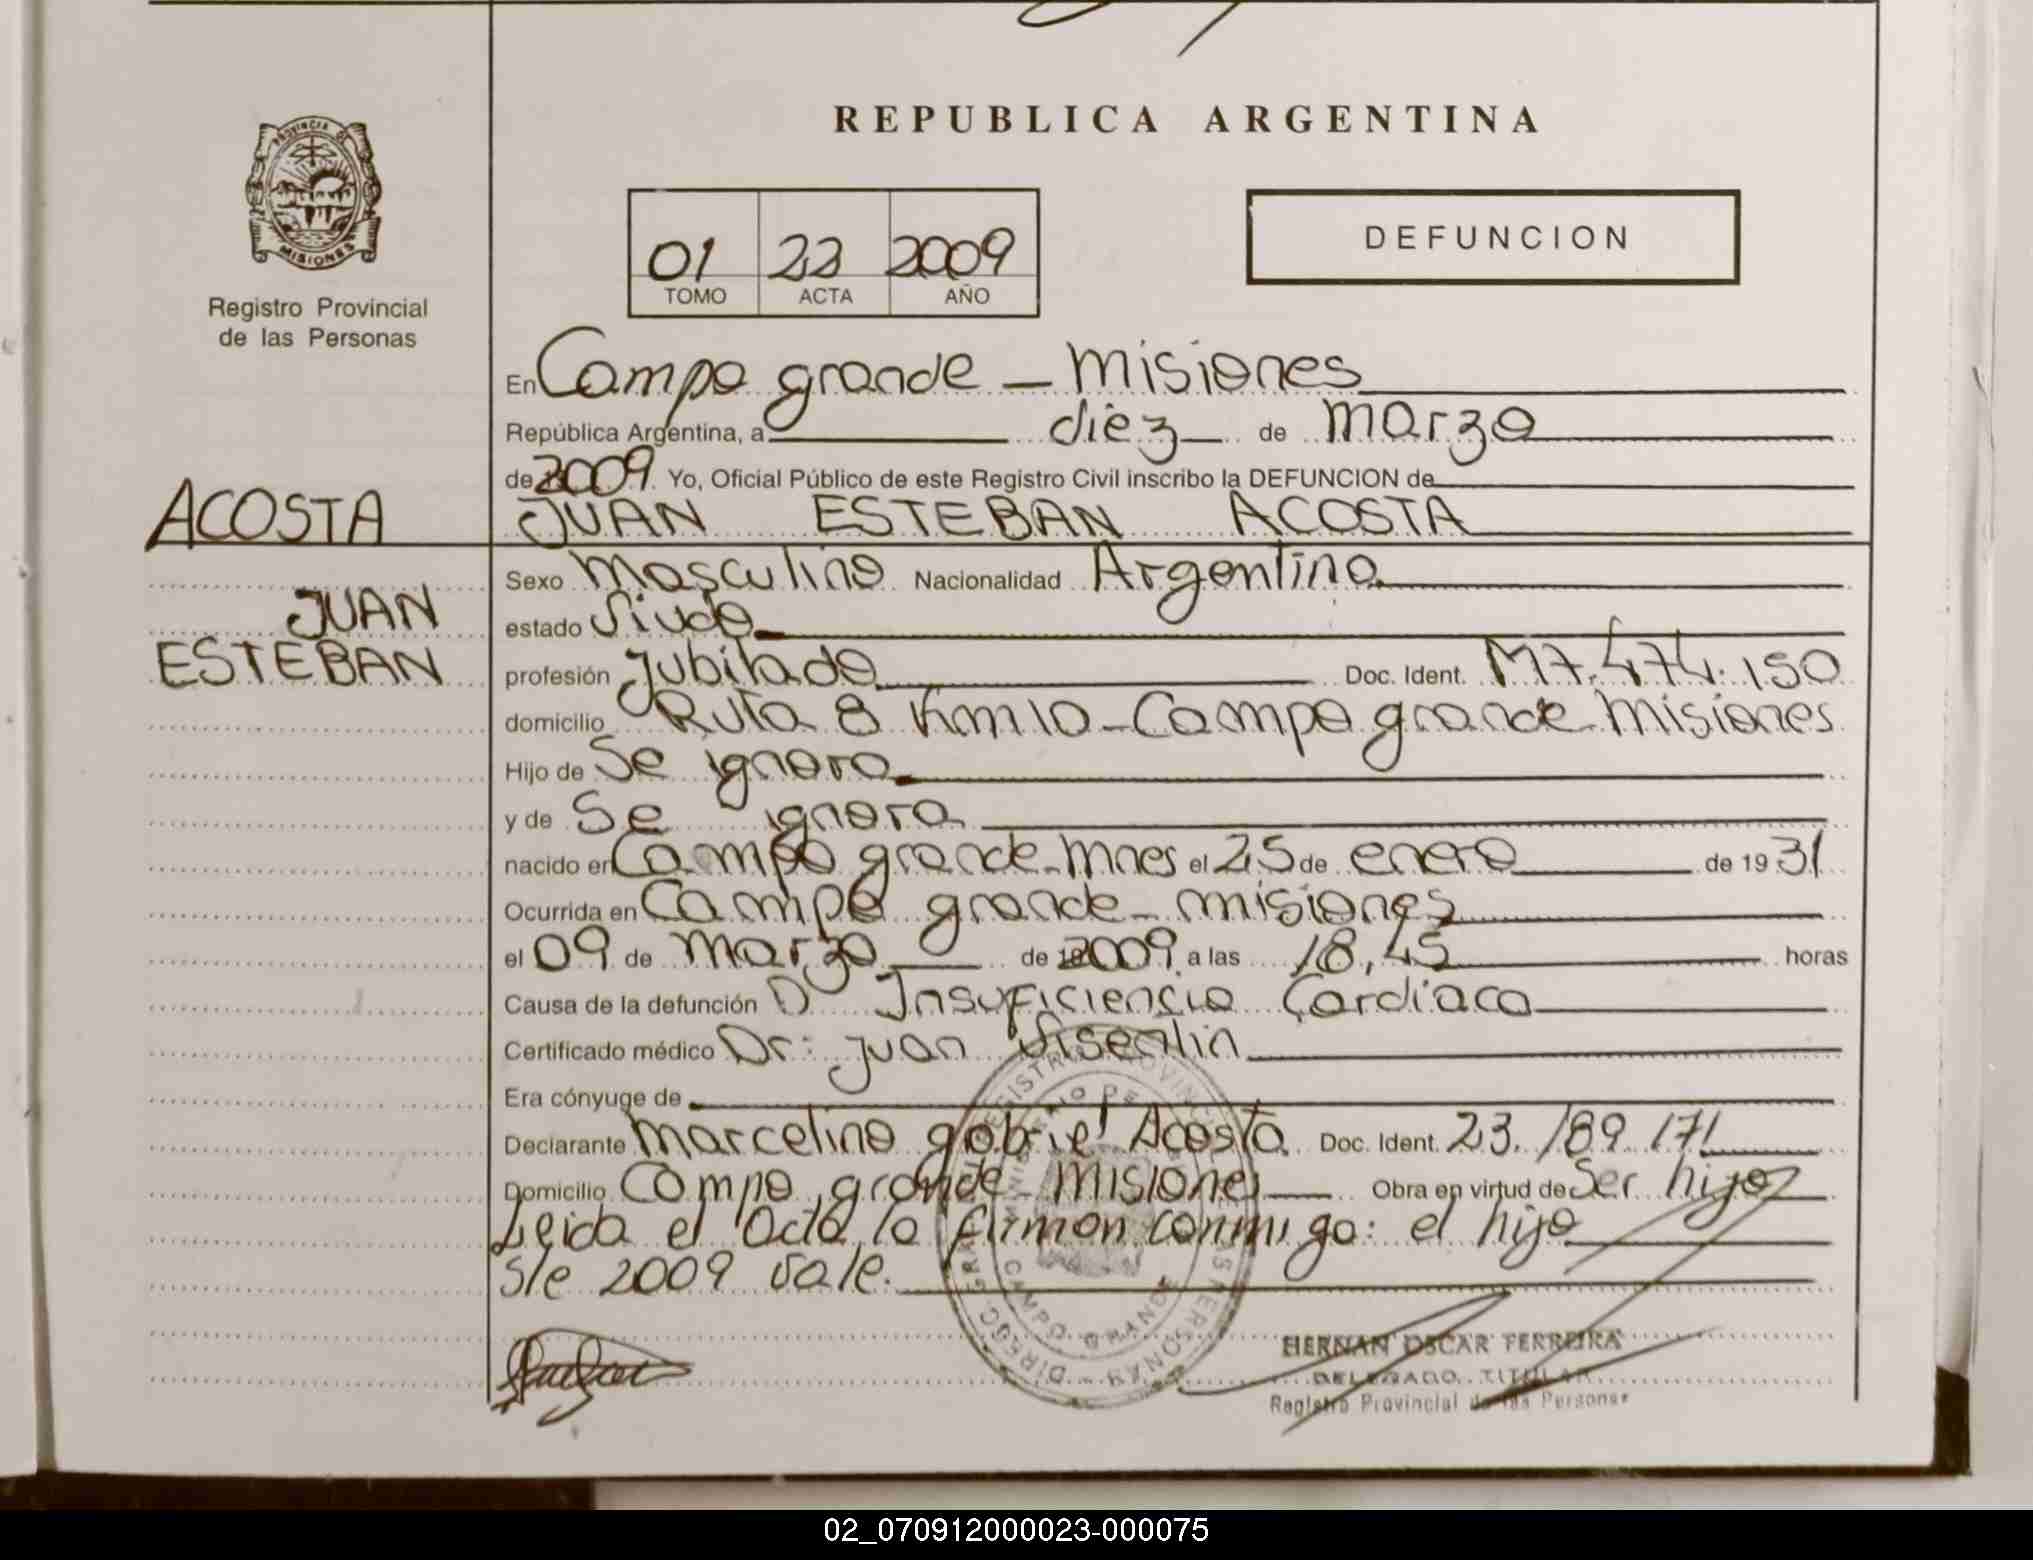 REPUBLICA ARGENTINA
PROVINCIA DE
MISIONES
Registro Provincial
de las Personas
01 22 2009
TOMO ACTA AÑO
DEFUNCION
En Campo grande - Misiones
República Argentina, a diez de Marzo
de 2009. Yo, Oficial Público de este Registro Civil inscribo la DEFUNCION de
ACOSTA
JUAN ESTEBAN ACOSTA
Sexo Masculino Nacionalidad Argentina
JUAN
estado Viudo
ESTEBAN
profesión Jubilado Doc. Ident. M7.474.150
domicilio Ruta 8 Km10 - Campo grande - Misiones
Hijo de Se ignora
y de Se ignora
nacido en Campo grande - Mnes el 25 de enero de 1931
Ocurrida en Campo grande - misiones
el 09 de Marzo de 2009 a las 18,45 horas
Causa de la defunción D Insuficiencia Cardiaca
Certificado médico Dr: Juan Visentin
Era cónyuge de
Declarante Marcelino gabriel Acosta Doc. Ident. 23.189.171
Domicilio Campo grande - Misiones Obra en virtud de Ser hijo
Leida el acta la firman conmigo: el hijo
S/e 2009 vale.
CAMPO GRANDE
HERNAN OSCAR FERREIRA
DELEGADO TITULAR
Registro Provincial de las Personas
02_070912000023-000075